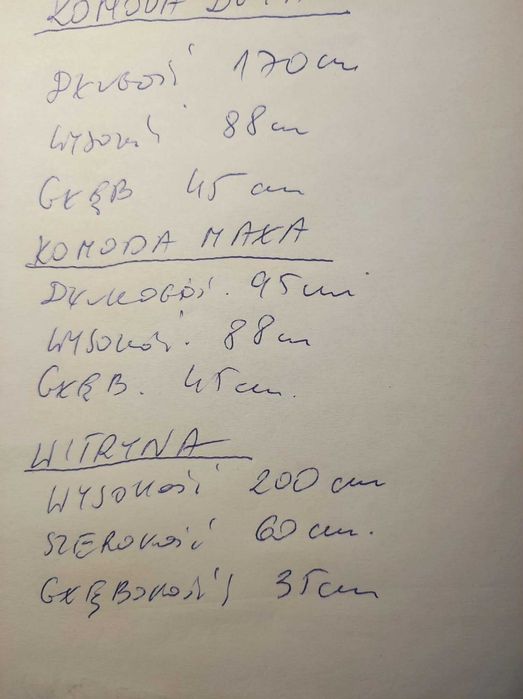 KOMODA DUŻA
DŁUGOŚĆ 170cm
WYSOKOŚĆ 88cm
GŁĘB 45 cm
KOMODA MAŁA
DŁUGOŚĆ. 95cm
WYSOKOŚĆ. 88cm
GŁĘB. 45cm.
WITRYNA
WYSOKOŚĆ 200 cm
SZEROKOŚĆ 60 cm.
GŁĘBOKOŚĆ 35cm